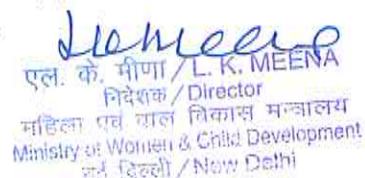 एल. के. मीणा / L. K. MEENA
निदेशक / Director
महिला एवं बाल विकास मन्त्रालय
Ministry of Women & Child Development
नई दिल्ली / New Delhi